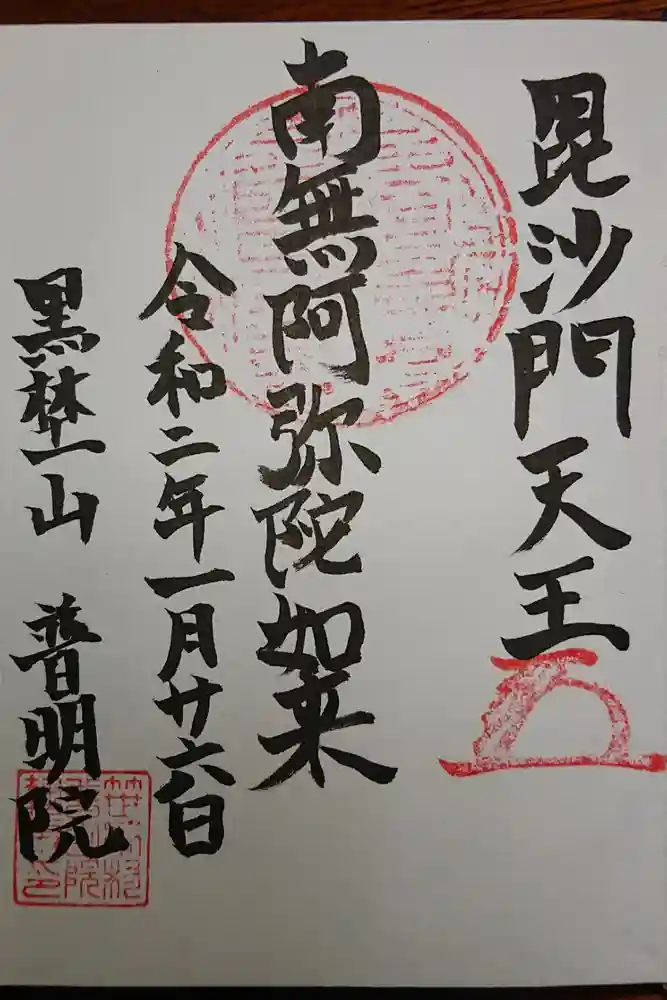 毘沙門天王
南無阿弥陀如来
令和二年一月廿六日
黒埜山 普明院